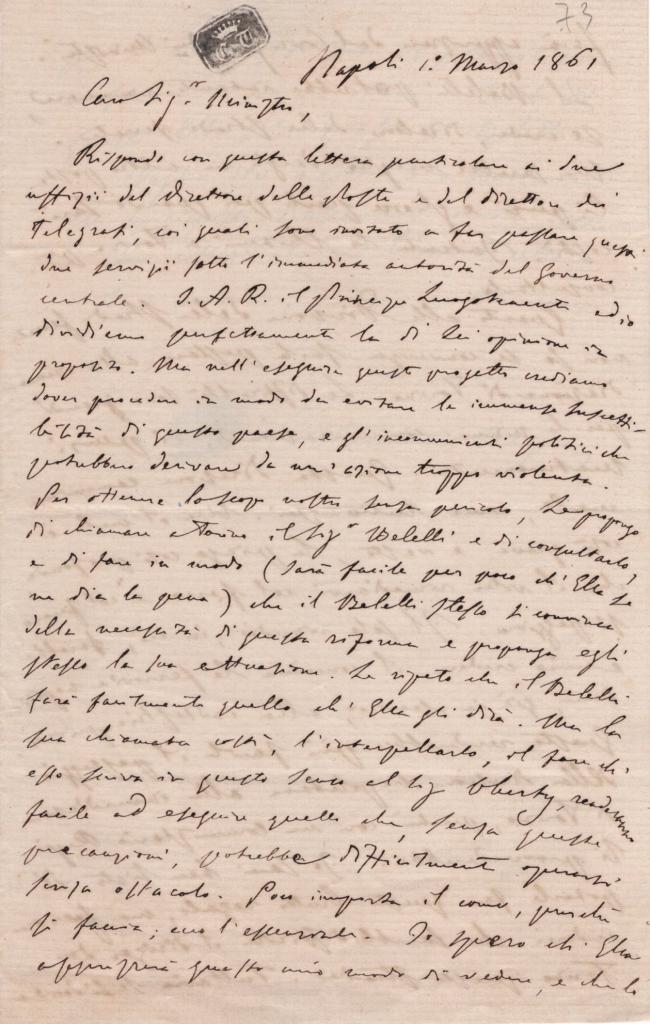 73
Napoli 1° Marzo 1861
Caro Sig.r Ministro,
Rispondo con questa lettera particolare ai due
uffizii del direttore delle Poste e del direttore dei
Telegrafi, coi quali sono invitato a far passare questi
due servizii sotto l'immediata autorità del Governo
centrale. S. A. R. il Principe Luogotenente ed io
dividiamo perfettamente la di Lei opinione in
proposito. Ma nell'eseguire questo progetto crediamo
dover procedere in modo da evitare le immense suscetti-
bilità di questo paese, e gl'inconvenienti politici che
potrebbero derivare da un'azione troppo violenta.
Per ottenere lo scopo nostro senza pericolo, Le propongo
di chiamare a Torino il Sig.r Belelli e di consultarlo,
e di fare in modo (sarà facile per poco ch'Ella se
ne dia la pena) che il Belelli stesso si convinca
della necessità di questa riforma e proponga egli
stesso la sua attuazione. Le ripeto che il Belelli
farà facilmente quello ch'Ella gli dirà. Ma la
sua chiamata costì, l'interpellarlo, il fare ch'
esso scriva in questo senso al Sig. Oberty, renderanno
facile ad eseguire quello che, senza queste
precauzioni, potrebbe difficilmente operarsi
senza ostacolo. Poco importa il come, purchè
si faccia; ecco l'essenziale. Io spero ch'Ella
apprezzerà questo mio modo di vedere, e che lo